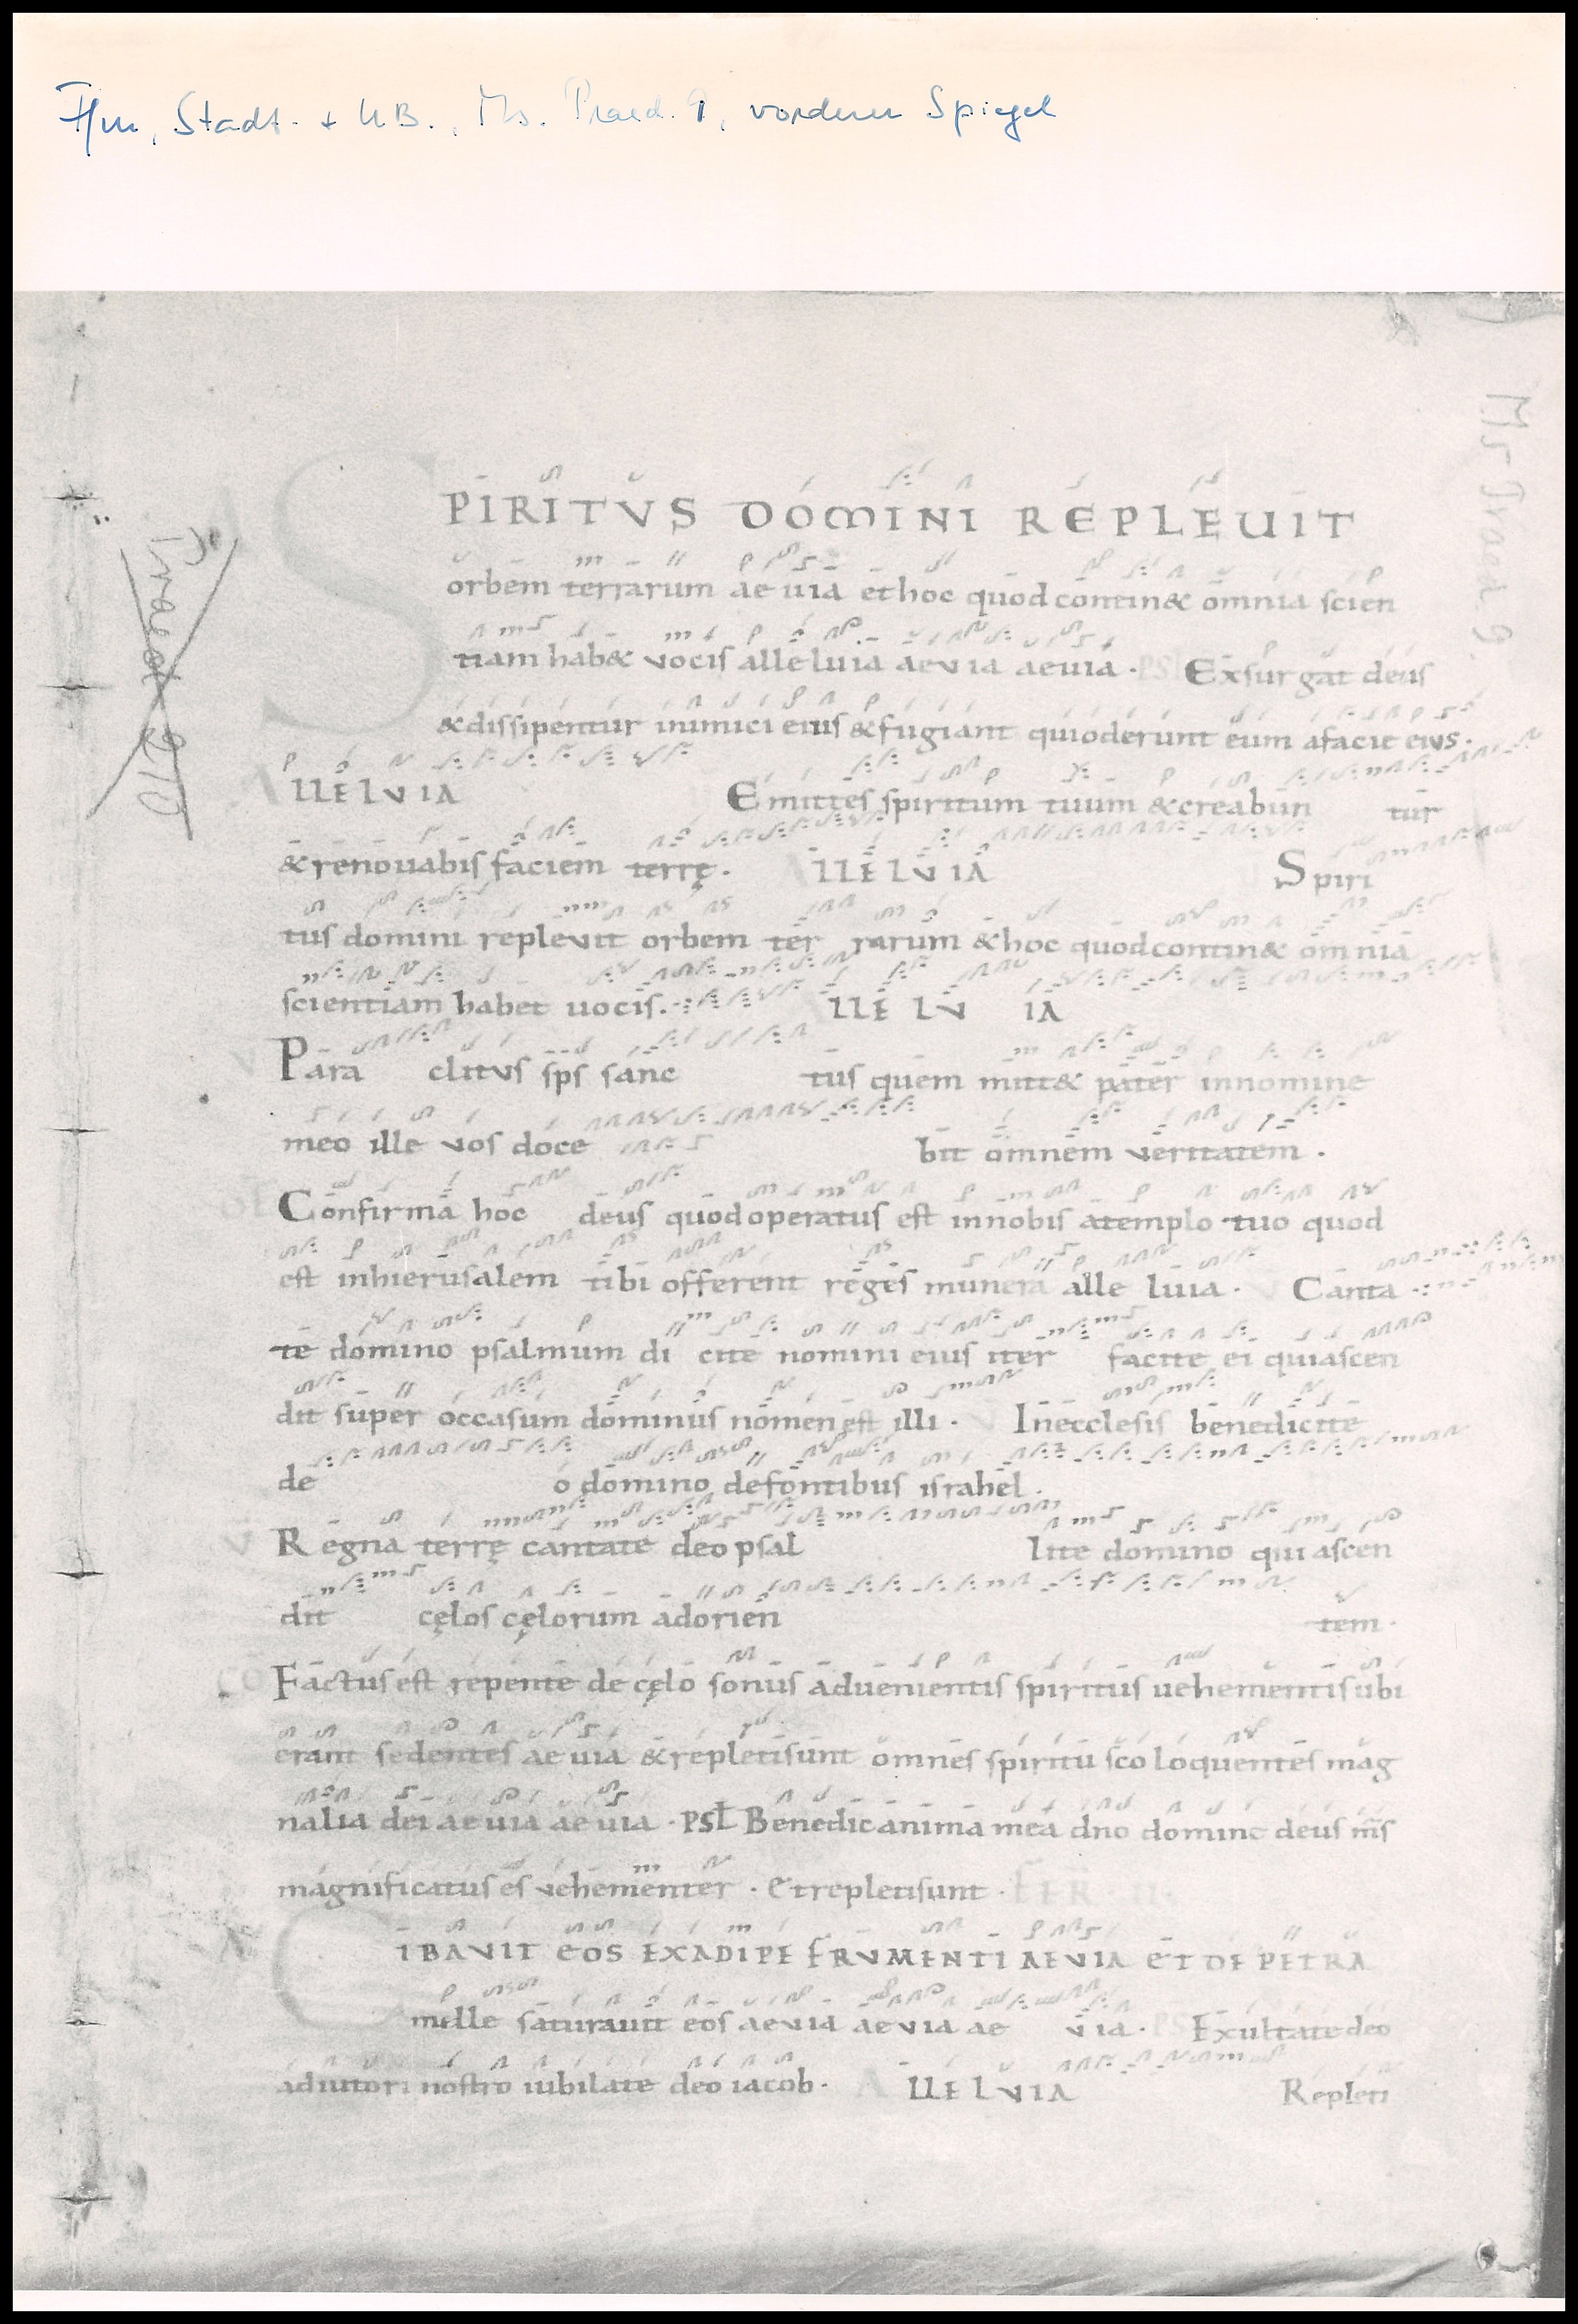 Ffm, Stadt- + UB., Ms. Praed. 9, vorderer Spiegel
Ms. Praed. 9.
Praed. 210
SPIRITVS DOMINI REPLEUIT
orbem terrarum aeuia et hoc quod contin& omnia scien
tiam hab& vocis alleluia aevia aeuia · PS Exsurgat deus
& dissipentur inimici eius & fugiant qui oderunt eum a facie eius ·
ALLELVIA Emittes spiritum tuum & creabun tur
& renouabis faciem terrę · ALLELVIA Spiri
tus domini replevit orbem ter rarum & hoc quod contin& omnia
scientiam habet uocis · ALLE LV IA
V Para clitus sps sanc tus quem mitt& pater in nomine
meo ille vos doce bit omnem veritatem ·
OF Confirma hoc deus quod operatus est in nobis a templo tuo quod
est in hierusalem tibi offerent reges munera alle luia · V Canta
te domino psalmum di cite nomini eius iter facite ei qui ascen
dit super occasum dominus nomen est illi · V In ecclesis benedicite
de o domino de fontibus israhel ·
V Regna terrę cantate deo psal lite domino qui ascen
dit cęlos cęlorum ad orien tem ·
CO Factus est repente de cęlo sonus aduenientis spiritus uehementis ubi
erant sedentes aeuia & repleti sunt omnes spiritu sco loquentes mag
nalia dei aeuia aeuia · PSL Benedic anima mea dno domine deus ms
magnificatus es vehementer · Et repleti sunt · FER · II ·
CIBAVIT EOS EX ADIPE FRVMENTI AEVIA ET DE PETRA
melle saturauit eos aevia aevia ae via · PS Exultate deo
adiutori nostro iubilate deo iacob · ALLELVIA Repleti